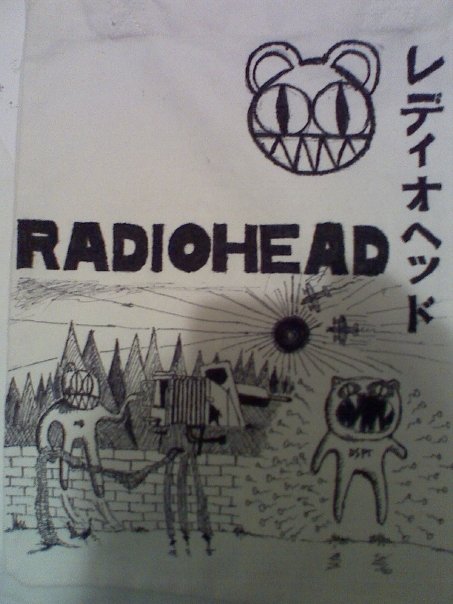 レディオヘッド
RADIOHEAD